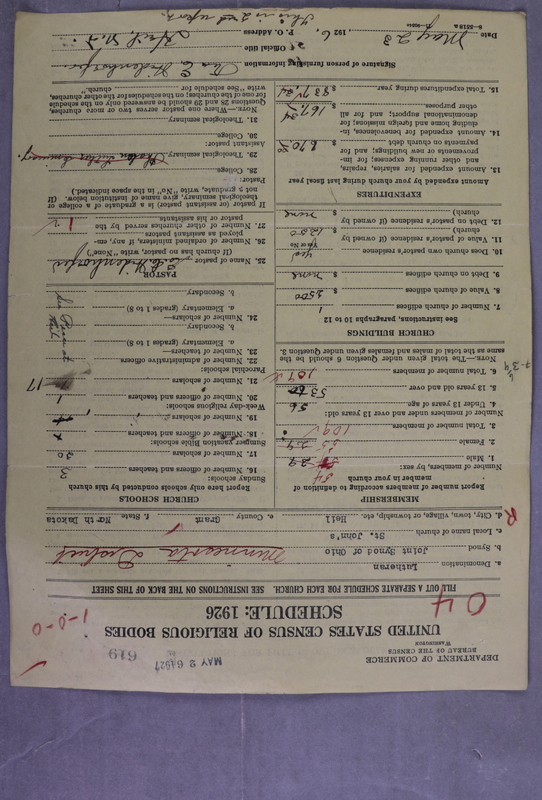 DEPARTMENT OF COMMERCE
BUREAU OF THE CENSUS
WASHINGTON
MAY 2 6 1927
619
UNITED STATES CENSUS OF RELIGIOUS BODIES
SCHEDULE: 1926
04
1-0-0
FILL OUT A SEPARATE SCHEDULE FOR EACH CHURCH. SEE INSTRUCTIONS ON THE BACK OF THIS SHEET
a. Denomination Lutheran
b. Synod Joint Synod of Ohio Minnesota District
c. Local name of church St. John's
d. City, town, village, or township, etc. Heil e. County Grant f. State North Dakota
R
MEMBERSHIP
Report number of members according to definition of member in your church
Number of members, by sex:
1. Male
54
2. Female
55
3. Total number of members
109
Number of members under and over 13 years old:
4. Under 13 years of age 56
5. 13 years old and over 53
6. Total number of members 109
NOTE.—The total given under Question 6 should be the
same as the total of males and females given under Question 3.
CHURCH BUILDINGS
See instructions, paragraphs 10 to 12
7. Number of church edifices 1
8. Value of church edifices $ 3500
9. Debt on church edifices $ none
10. Does church own pastor's residence yes
Yes or No
11. Value of pastor's residence (if owned by
church) $ 1250
12. Debt on pastor's residence (if owned by
church) $ none
EXPENDITURES
Amount expended by your church during last fiscal year
13. Amount expended for salaries, repairs,
and other running expenses; for im-
provements or new buildings; and for
payments on church debt $ 670
14. Amount expended for benevolences, in-
cluding home and foreign missions; for
denominational support; and for all
other purposes $ 167.34
15. Total expenditures during year $ 837.34
CHURCH SCHOOLS
Report here only schools conducted by this church
Sunday schools:
16. Number of officers and teachers 3
17. Number of scholars 30
Summer vacation Bible schools:
18. Number of officers and teachers
19. Number of scholars
Week-day religious schools:
20. Number of officers and teachers 1
21. Number of scholars 17
Parochial schools:
22. Number of administrative officers
23. Number of teachers—
a. Elementary (grades 1 to 8)
b. Secondary
24. Number of scholars—
a. Elementary (grades 1 to 8)
b. Secondary
PASTOR
25. Name of pastor
(If church has no pastor, write "None")
26. Number of ordained ministers, if any, em-
ployed as assistant pastors
27. Number of other churches served by the
pastor or his assistants
If pastor (or assistant pastor) is a graduate of a college or
theological seminary, give name of institution below. (If
not a graduate, write "No" in the space indicated.)
Pastor:
28. College
29. Theological seminary
Assistant pastor:
30. College
31. Theological seminary
NOTE.—Where one pastor serves two or more churches,
Questions 25 and 28 should be answered only on the schedule
for one of the churches; on the schedules for the other churches,
write "See schedule for church."
Signature of person furnishing information
Official title
Date May 23, 1926, P. O. Address Heil N. D.
8—5519 a
This is 2nd report